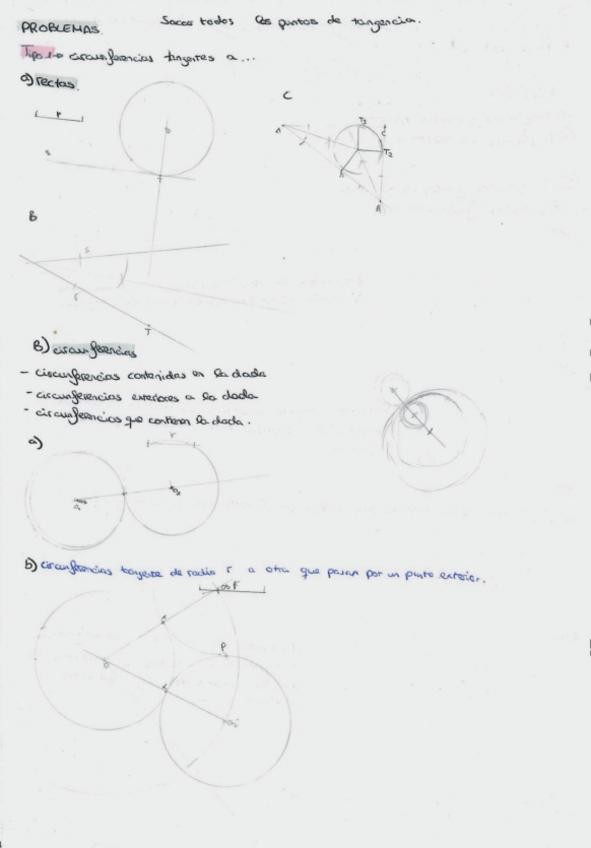 Sacar todos los puntos de tangencia.
PROBLEMAS
Tipo 1→ circunferencias tangentes a...
a) rectas.
r
C
s
T
T2
B
s
r
T
B) circunferencias
- circunferencias contenidas en la dada
- circunferencias exteriores a la dada
- circunferencias que contienen la dada.
a)
r
b) circunferencias tangente de radio r a otra que pasan por un punto exterior.
P
O